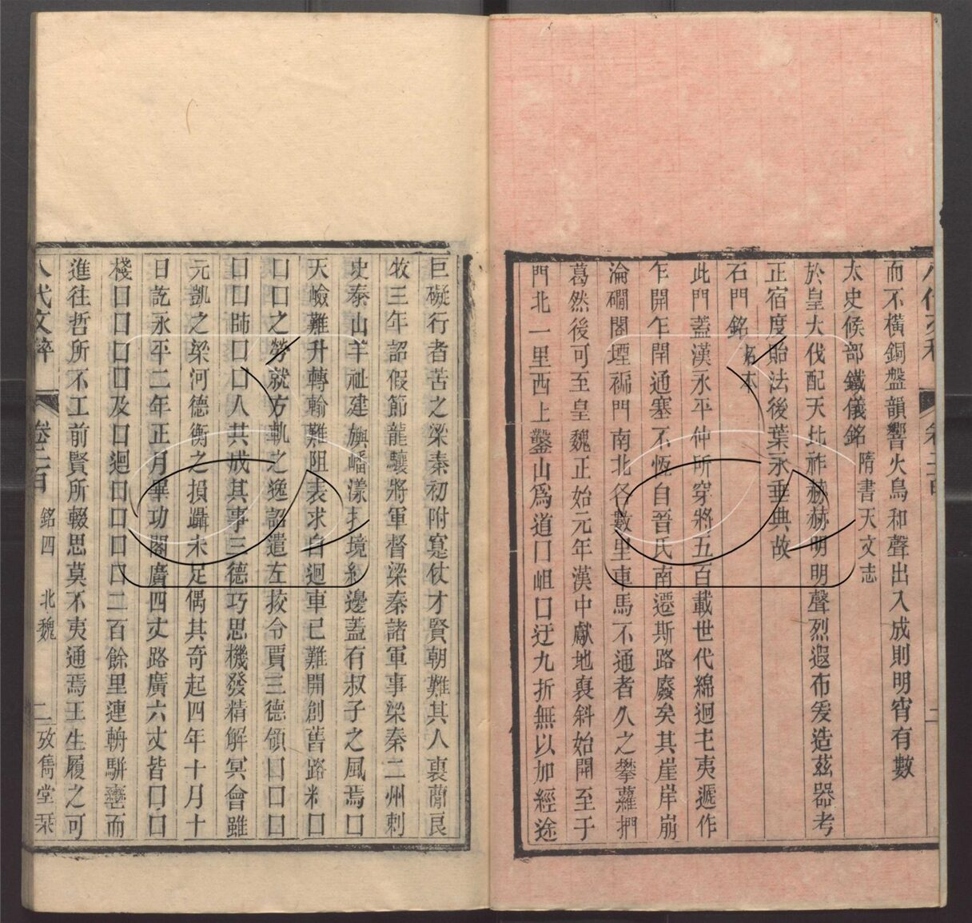 而不橫銅盤韻響火鳥和聲出入成則明宵有數
太史候部鐵儀銘 隋書天文志
於皇大代配天比祚赫赫明明聲烈遐布爰造茲器考
正宿度貽法後葉永垂典故
石門銘 拓本
此門蓋漢永平中所穿將五百載世代綿迴屯夷遞作
乍開乍閉通塞不恆自晉氏南遷斯路廢矣其崖岸崩
淪磵閣堙褊門南北各數里車馬不通者久之攀蘿捫
葛然後可至皇魏正始元年漢中獻地襃斜始開至于
門北一里西上鑿山為道口岨口迂九折無以加經途
巨礙行者苦之梁秦初附寔仗才賢朝難其人褒簡良
牧三年詔假節龍驤將軍督梁秦諸軍事梁秦二州刺
史泰山羊祉建旟嶓漾境綏邊蓋有叔子之風焉口
天嶮難升轉輸難阻表求自迴車已難開創舊路口
口口之勞就方軌之逸詔遣左校令賈三德領口口口
口口師口口人共成其事三德巧思機發精解冥會雖
元凱之梁河德衡之損躡未足偶其奇起四年十月十
日訖永平二年正月畢功閣廣四丈路廣六丈皆口口
棧口口口口及口迴口口口口二百餘里連輈駢轡而
進往哲所不工前賢所輟思莫不夷通焉王生履之可
八代文粹 卷二百 銘四 北魏 二 攷雋堂栞